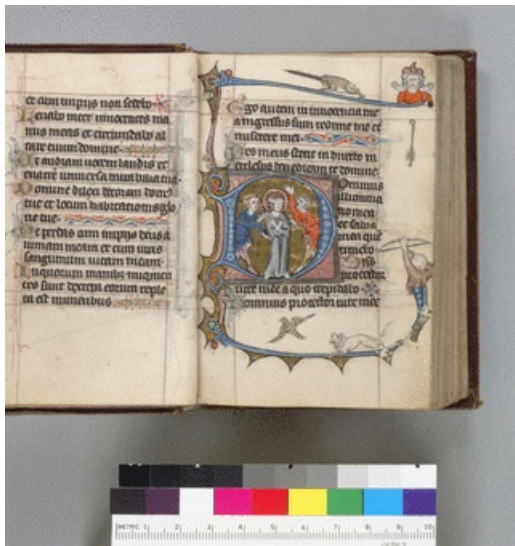 et cum impijs non sedebo
Lavabo inter innocentes ma
nus meas et circumdabo al
tare tuum domine
Ut audiam vocem laudis et
enarrem universa mirabilia tua
Domine dilexi decorem dom'
tue et locum habitationis glo
rie tue
Ne perdas cum impijs deus a
nimam meam et cum viris
sanguinum vitam meam
In quorum manibz iniquita
tes sunt dextera eorum reple
ta est muneribus
Ego autem in innocentia me
a ingressus sum redime me et
miserere mei
Pes meus stetit in directo in
ecclesijs benedicam te domine
Dominus
illumina
tio mea
et salus
mea quē
timebo
Dn̄s
protector
vite mee a quo trepidabo
Dominus protector vite mee
METRIC 1 2 3 4 5 6 7 8 9 10